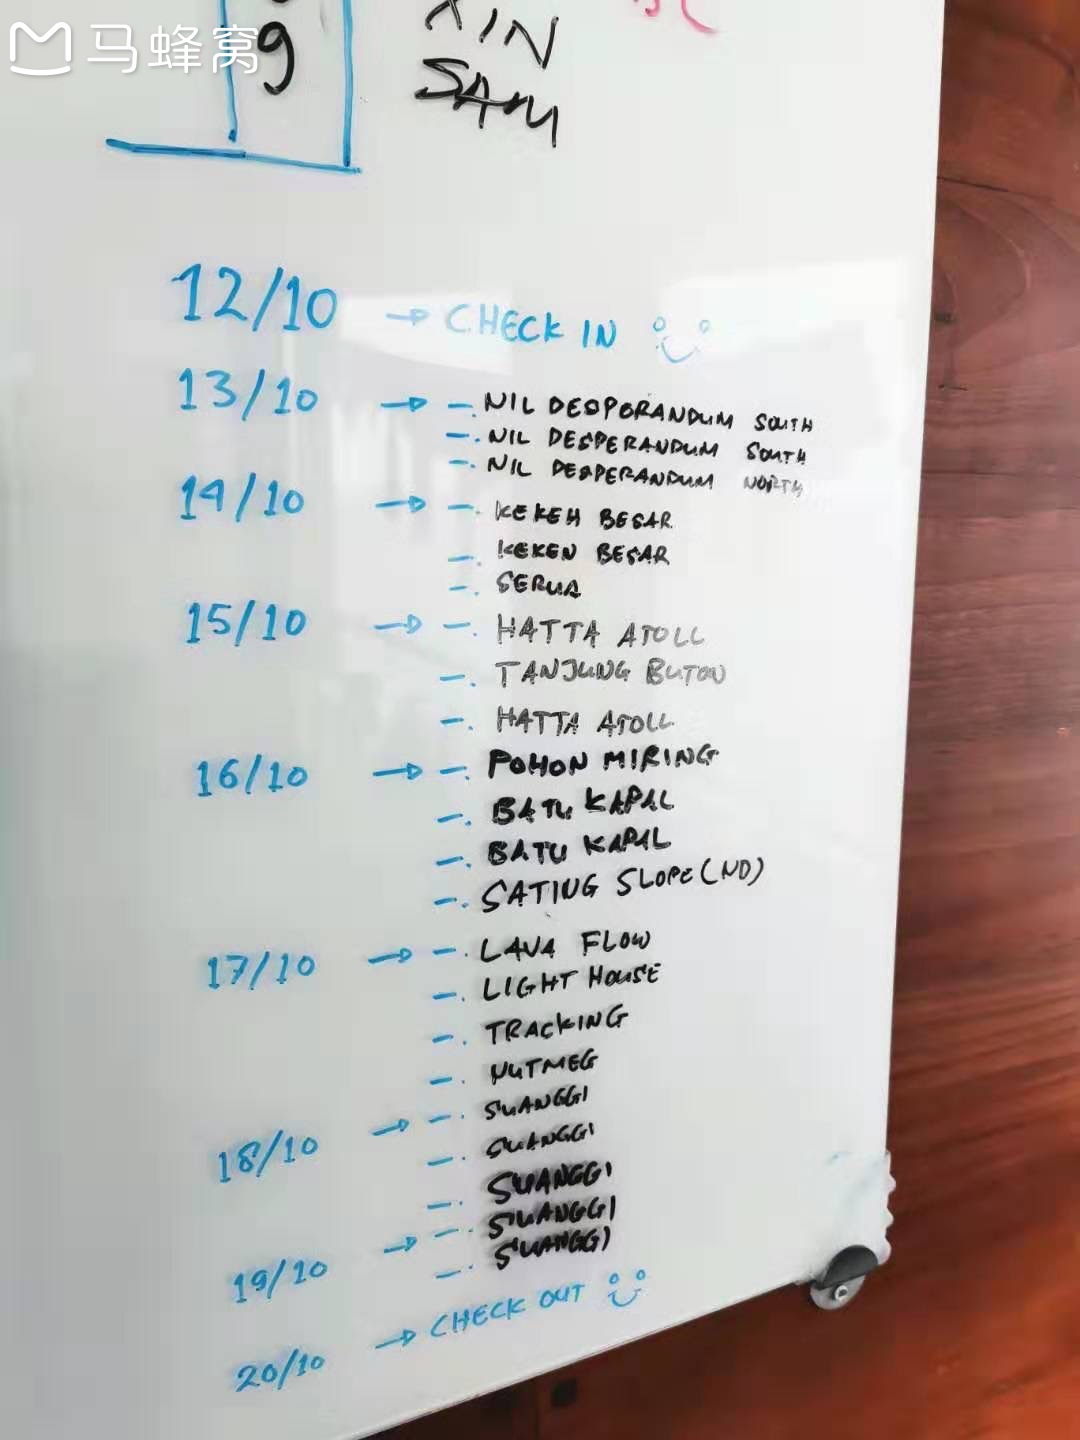 马蜂窝
9
XIN
SAM
12/10 → CHECK IN
13/10 → -. NIL DESPERANDUM SOUTH
-. NIL DESPERANDUM SOUTH
-. NIL DESPERANDUM NORTH
14/10 → -. KEKEH BESAR
-. KEKEH BESAR
-. SERUA
15/10 → -. HATTA ATOLL
-. TANJUNG BUTON
-. HATTA ATOLL
16/10 → -. POHON MIRING
-. BATU KAPAL
-. BATU KAPAL
-. SATING SLOPE (ND)
17/10 → -. LAVA FLOW
-. LIGHT HOUSE
-. TRACKING
-. NUTMEG
18/10 → -. SUANGGI
-. SUANGGI
-. SUANGGI
19/10 → -. SUANGGI
-. SUANGGI
20/10 → CHECK OUT